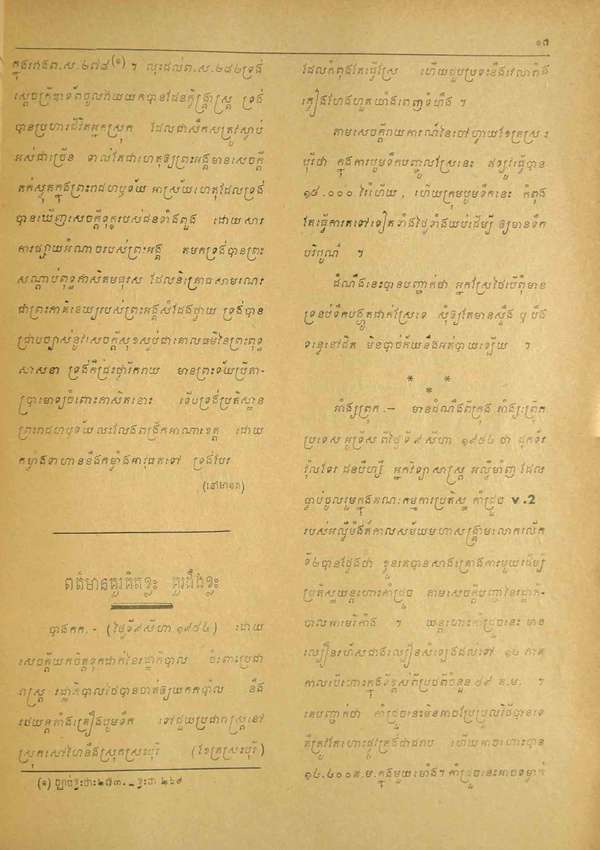 ១៣
ក្នុងរវាងព.ស.២៧៨(១) ។ លុះដល់ព.ស.២៨២ទ្រង់
ស្តេចគ្រីធាទ័ពចូលវាយយកបានដែនកូដ្ឋរាស្ត្រ ទ្រង់
បានប្រហារជីវិតអ្នកស្រុក ដែលជាសឹកសត្រូវស្លាប់
អស់ជាច្រើន ទាល់តែជាហេតុឲ្យព្រះអង្គមានសេចក្តី
តក់ស្លុតក្នុងព្រះរាជហឫទ័យ អាស្រ័យហេតុដែលទ្រង់
បានឃើញសេចក្តីទុក្ខរបស់ជនទាំងពួង ដោយសារ
ការផ្សាយអំណាចរបស់ព្រះអង្គ តមកទ្រង់បានព្រះ
សណ្តាប់ពុទ្ធភាសិតមធុរស ដែលនិគ្រោធសាមណេរ
ជាព្រះភាគិនេយ្យរបស់ព្រះអង្គសំដែងថ្វាយ ទ្រង់បាន
ជ្រាបច្បាស់នូវសេចក្តីសុខស្ងប់ជាគោលធម៌នៃព្រះពុទ្ធ
សាសនា ទ្រង់ក៏ជ្រះថ្លារីករាយ មានព្រះទ័យប្រែភា-
ប្រោមោទ្យចំពោះភាសិតនោះ ទើបទ្រង់ប្រតិស្ឋាន
ព្រះរាជហឫទ័យលះលែងពង្រីកអាណាខេត្ត ដោយ
កម្លាំងទាហាននឹងកម្លាំងអាវុធតទៅ ទ្រង់បែរ
(នៅមានត)
ពត៌មានគួរគិតខ្លះ គួរដឹងខ្លះ
បាងកក.- (ថ្ងៃទី៩សីហា ១៩៥៤) ដោយ
សេចក្តីយកចិត្តទុកដាក់នៃរដ្ឋាភិបាល ចំពោះប្រជា
រាស្ត្រ រដ្ឋាភិបាលថៃបានចាត់ឲ្យយកកប៉ាល់ នឹង
រថយន្តតាំងគ្រឿងបូមទឹក ទៅជួយប្រជារាស្ត្រនៅ
ស្រុកសៅហៃនឹងស្រុកស្រះបុរី (ខែត្រស្រះបុរី)
(១) ច្បាប់ខ្លះថាះ២៧៣. _ ខ្លះថា ២៦៩
ដែលកំពុងតែធ្វើស្រែ ហើយជួបប្រទះនឹងវេលាភ្លៀង
ភ្លៀងហែងហួតយ៉ាងពេញទំហឹង ។
តាមសេចក្តីរាយការណ៍នៃចៅហ្វាយខែត្រស្រះ
បុរីថា ក្នុងការបូមទឹកបញ្ចូលស្រែនេះ ឥឡូវធ្វើបាន
១៨.០០០ រ៉ៃហើយ, ហើយក្រុមបូមទឹកនេះ កំពុង
តែធ្វើការតទៅទៀតទាំងថ្ងៃទាំងយប់ដើម្បី ឲ្យមានទឹក
បរិបូណ៌ ។
ដំណឹងនេះបានបញ្ជាក់ថា អ្នកស្រែថៃបើពុំមាន
ទ្រនប់ទឹកបង្ហូតដាក់ស្រែទេ សុំឲ្យតែមានស្ទឹង ឬ បឹង
ទន្លេនៅជិត មិនបាច់ភ័យនឹងអត់បាយឡើយ ។
* * *
អាំងស្ប្រុក.– មានដំណឹងពីក្រុង អាំងស្ប្រ៊ុក
ប្រទេស អូទ្រីស ពីថ្ងៃទី ៩ សីហា ១៩៥៤ ថា ដុកទ័រ
វ៉ុលទែរ ដនបឺហ្សី អ្នកវិទ្យាសាស្ត្រ អល្លឺម៉ាញ ដែល
ធ្លាប់ចូលរួមក្នុងគណៈកម្មការប្រតិស្ឋ កាំជ្រួច v.2
របស់អល្លឺម៉ង់ក៏កាលសម័យមហាសង្គ្រាមលោកលើក
ទី២បានថ្លែងថា ខ្លួនគេបានសាងគ្រោងការមួយដើម្បី
ប្រតិស្ឋយន្តហោះកាំជ្រួច តាមសេចក្តីបញ្ជានៃរដ្ឋាភិ-
បាលអាមេរិកាំង ។ យន្តហោះកាំជ្រួចនេះ មាន
ល្បឿនរហ័សជាងល្បឿនសំឡេងដល់ទៅ ១៤ ភាគ
កាលបើហោះក្នុងទីខ្ពស់ពីប្រថពីចំនួន ៨៩ គ.ម. ។
គេបញ្ជាក់ថា កាំជ្រួចនេះមិនអាចប្រែប្រួលវិថីបានទេ
គឺត្រូវតែហោះផ្លូវត្រង់ជាដរាប ហើយអាចហោះបាន
១៤.៤០០គ.ម.ក្នុងមួយម៉ោង។ កាំជ្រួចនេះអាចទម្លាក់